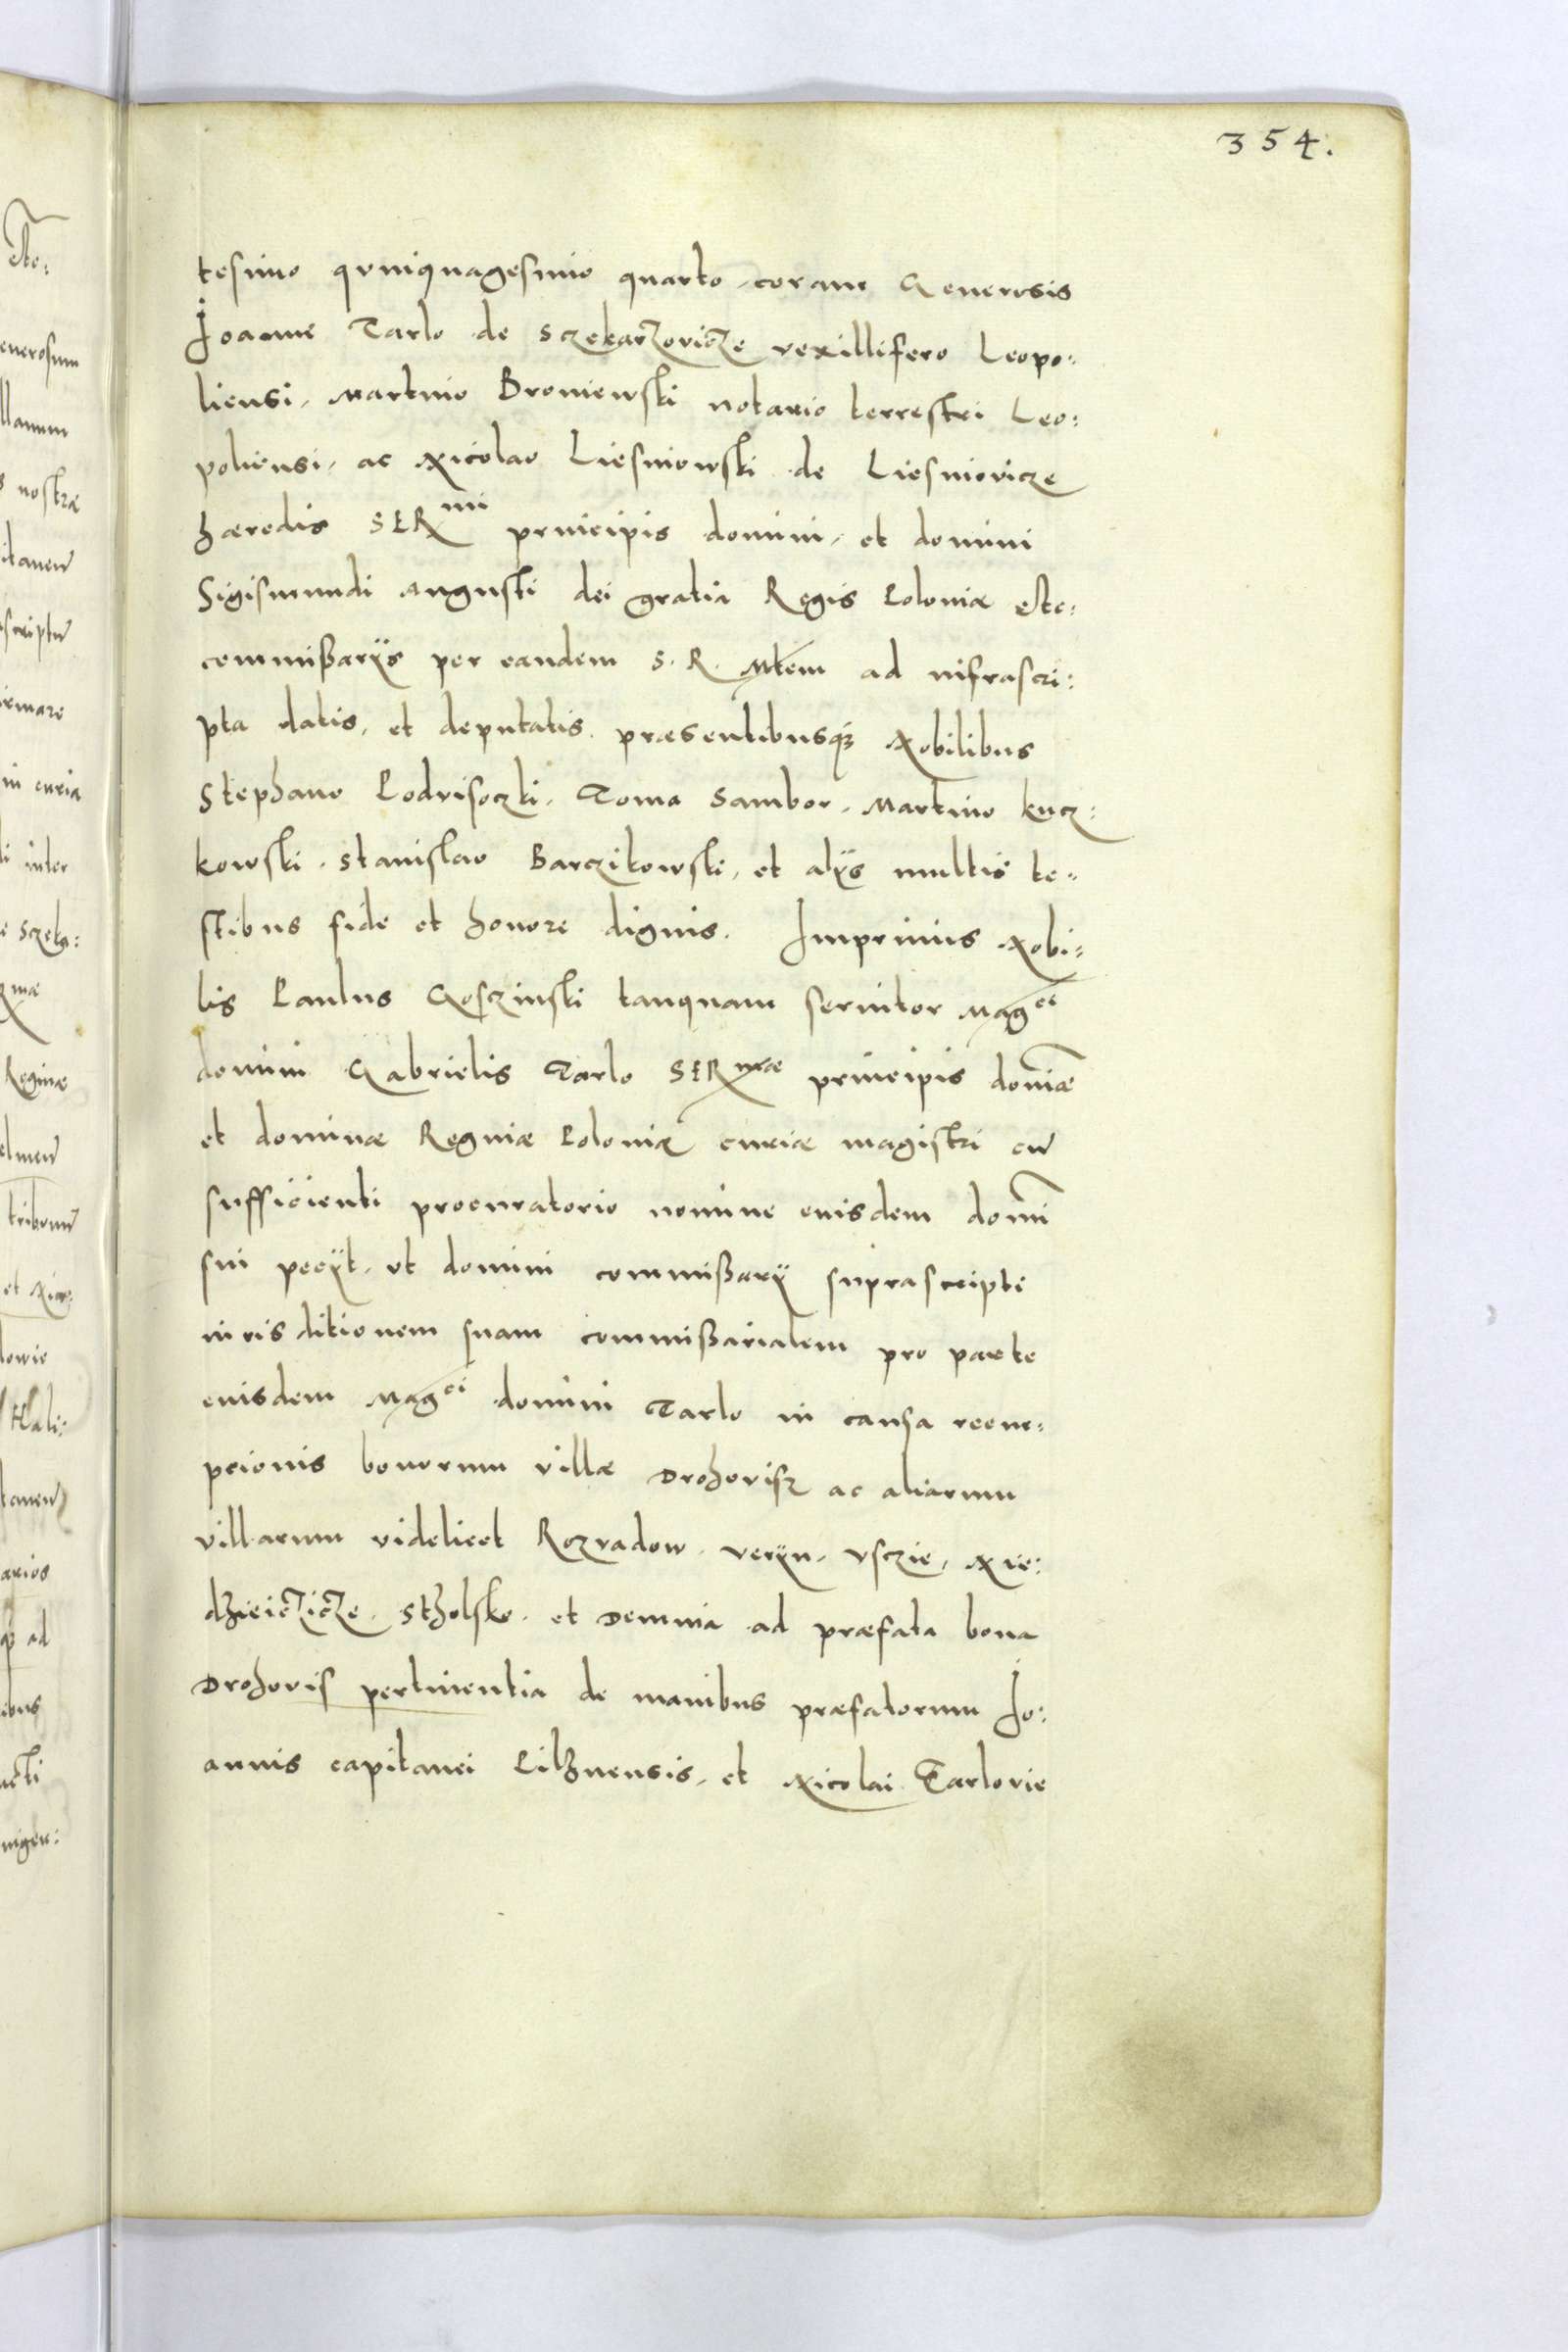 354.
tesimo quinquagesimo quarto, coram Generosis
Joanne Tarlo de Sczekarzovicze vexillifero Leopo:
liensi, Martino Broniewski notario terrestri Leo:
poliensi, ac Nicolao Liesniowski de Liesniovicze
hæredis SERmi principis domini, et domini
Sigismundi Augusti dei gratia Regis Poloniæ etc:
commißarijs per eandem S. R. Mtem ad infrascri:
pta datis, et deputatis, præsentibusq; Nobilibus
Stephano Podvisoczki, Toma Sambor, Martino Kucz:
kowski, Stanislao Barczikowski, et alijs multis te:
stibus fide et honore dignis. Imprimis Nobi:
lis Paulus Gosczinski tanquam servitor Magci
domini Gabrielis Tarlo SERmæ principis dominæ
et dominæ Reginæ Poloniæ curiæ magistri cu
sufficienti procuratorio nomine euisdem domi
sui pecijt, ut domini commißarij suprascripti
iurisditionem suam commißarialem pro parte
euisdem Magci domini Tarlo in causa recue:
pcionis bonorum villæ Drohovisz ac aliarum
villarum videlicet Rozvadow, Veryn, Usczie, Nie:
dzieiczicze, Stholsko, et Demnia ad præfata bona
Drohovis pertinentia de manibus præfatorum Jo:
annis capitanei Pilznensis, et Nicolai Tarlovie
enerosum
nostræ
in curia
inter
Reginæ